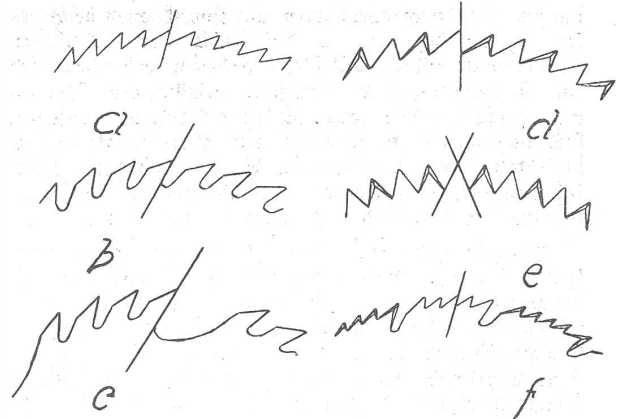 a
d
b
e
c
f